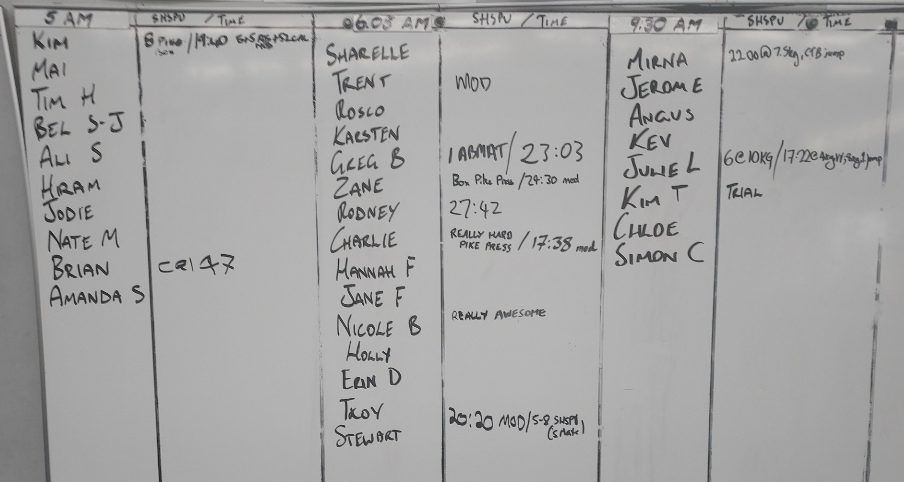 5 AM SHSPU / TIME
KIM 8 PIKE / 19:40
MAI
TIM H
BEL S-J
ALI S
HRAM
JODIE
NATE M
BRIAN cal 47
AMANDA S
06.03 AM SHSPU / TIME
SHARELLE
TRENT MOD
ROSCO
KARSTEN
GREG B 1 ABMAT / 23:03
ZANE Box Pike Press / 24:30 mod
RODNEY 27:42
CHARLIE REALLY HARD
PIKE PRESS / 17:38 mod
HANNAH F
JANE F
NICOLE B REALLY AWESOME
HOLLY
ERIN D
TROY
STEWART 20:20 MOD/5-8 SHSPU
9.30 AM SHSPU / TIME
MIRNA 22:00 @ 7.5kg, CTB jump
JEROME
ANGUS
KEV
JULIE L 6@10KG / 17:22@
KIM T TRIAL
CHLOE
SIMON C